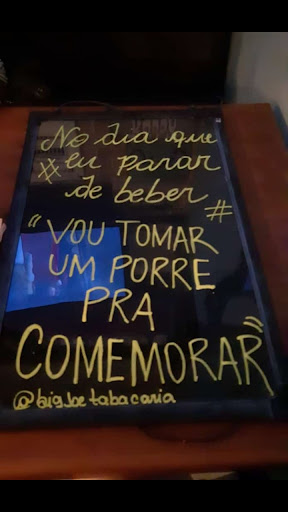 No dia que
# eu parar
de beber #
"VOU TOMAR
UM PORRE
PRA
COMEMORAR"
@bigJoetabacaria